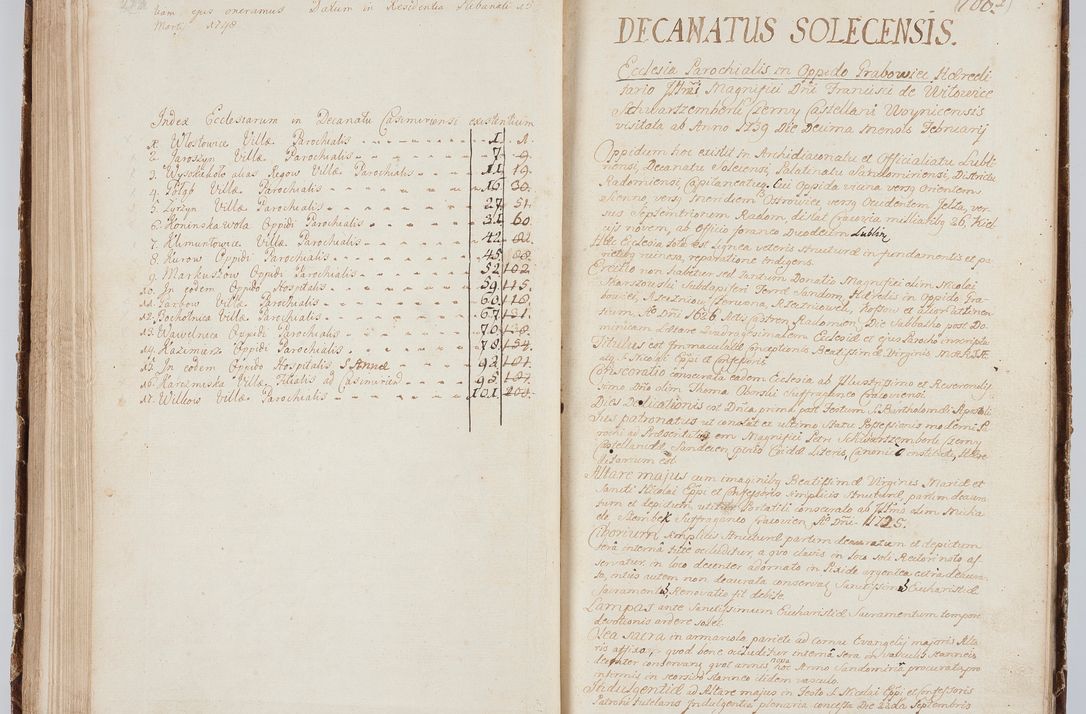 tiam ejus oneramus Datum in Residentia Plebanali 15
Marti 1748
Index Ecclesiarum in Decanatu Casimiriensi existentium
1. Włostowice Villæ Parochialis 1 1.
2. Jaroszyn Villæ Parochialis 7 9.
3. Wysokokoło alias Regow Villæ Parochialis 11 19.
4. Gołąb Villæ Parochialis 16 30.
5. Zyrzyn Villæ Parochialis 27 51.
6. Koninskawola Oppidi Parochialis 31 60
7. Klimuntowice Villæ Parochialis 42 82.
8. Kurow Oppidi Parochialis 45 88
9. Markuszow Oppidi Parochialis 52 102
10. In eodem Oppido Hospitalis 59 115.
11. Garbow Villæ Parochialis 60 118.
12. Bochotnica Villæ Parochialis 67 131
13. Wawelnica Oppidi Parochialis 70 138.
14. Kazimirz Oppidi Parochialis 78 154
15. In eodem Oppido Hospitalis S Annæ 92 181.
16. Karczmiska Villæ Filialis ad Casimiriam 95 187.
17. Wilkow Villæ Parochialis 101 200.
DECANATUS SOLECENSIS.
Ecclesia Parochialis in Oppido Grabowiec Hæredi
tario Jllmi Magnifici Dni Francisci de Witowice
Schwartzemberk Czerny Castellani Woynicensis
visitata ab Anno 1739 Die Decima Mensis Februarij
Oppidum hoc existit in Archidiaconatu et Officialiatu Lubli
nensi, Decanatu Solecensi, Palatinatu Sandomiriensi, Districtu
Radomiensi, Capitaneatuq. Cui Oppida vicina versq Orientem
Sienno, versq Meridiem Ostrowiec, versq Occidentem Jełża, ver
sus Septemtrionem Radom, distat Cracovia milliaribq 26, Kiel
cijs novem, ab Officio foraneo Duodecim Lublin
Hæc Ecclesia tota est lignea veteris structuræ in fundamentis et pa
rietibq ruinosa, reparatione indigens.
Erectio non habetur sed tantum Donatio Magnifici olim Nicolai
Subdapiferi Terræ Sandom Hæredis in Oppido Gra
bowiec, Rzeczniow,
sium, Ao Dni 1686 Actis Castren Radomien, Die Sabbatho post Do
minicam Lætare Quadragesimalem Ecclesiæ et ejus Parocho inscripta
Titulus est Immaculatæ Conceptionis Beatissimæ Virginis MARIÆ
atq S Nicolai Eppi et Confessoris
Consecratio consecrata eadem Ecclesia ab Illustrissimo et Reverendis
simo Dno olim Thoma Oborski Suffraganeo Cracoviensi.
Dies Dedicationis est Dnica prima post Festum S Bartholomæi Apostoli
Jus patronatus ut constat ex ultimo Statu Possessionis moderni Pa
rochi ad Præsentatq em Magnifici Petri Schwartzemberk Czerny
Castellanidæ Sandecen Literis, Canonicè instituti, Hære
ditarium est
Altare majus cum imaginibq Beatissimæ Virginis Mariæ et
Sancti Nicolai Eppi et Confessoris simplicis structuræ, partim deaura
tum et depictum, utitur Portatili consecrato ab Jllmo olim Micha
ele Szembek Suffraganeo Cracovien Ao Dni 1725.
Ciborium simplicis structuræ partim deauratum et depictum
Sera interna bene occluditur, a quo clavis in loco soli Rectori noto as
servatur, in loco decenter adornato in Pixide argentea extra deaura
ta, intus autem non deaurata conservat Sanctissimu Eucharistiæ
Sacramentu, Renovatio fit debite.
Lampas ante Sanctissimum Eucharistiæ Sacramentum tempore
devotionis ardere solet.
Olea sacra in armariolo parieti ad Cornu Evangelij majoris Alta
ris affixo, quod bene occluditur interna sera in vasculis stanneis
decenter conservanq quot annis nova hoc Anno Sandomiria procurata, pro
infirmis in scorsivo stanneo itidem vasculo.
Indulgentiæ ad Altare majus in Festo S Nicolai Eppi et Confessoris
Patroni tutelaris Indulgentia plenaria concessa Die 22da Septembris